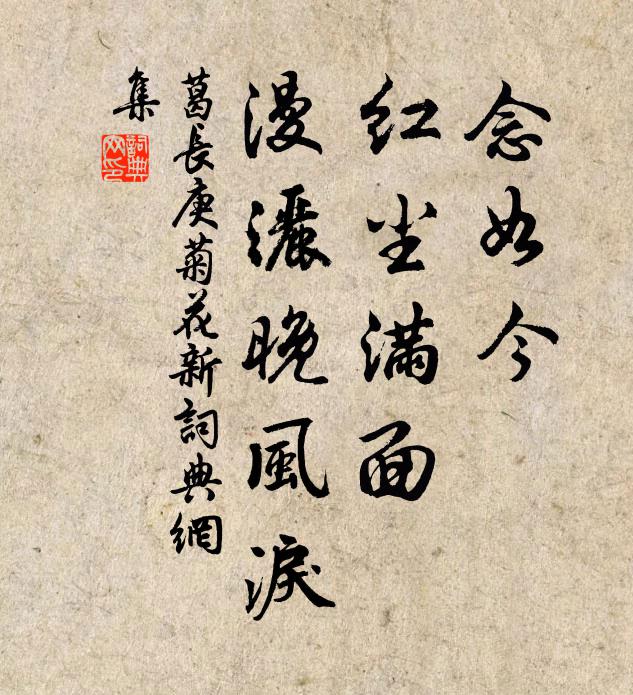 念如今
红尘满面
漫灑晚風淚
葛長庚菊花新詞典網
集
詞典
网印